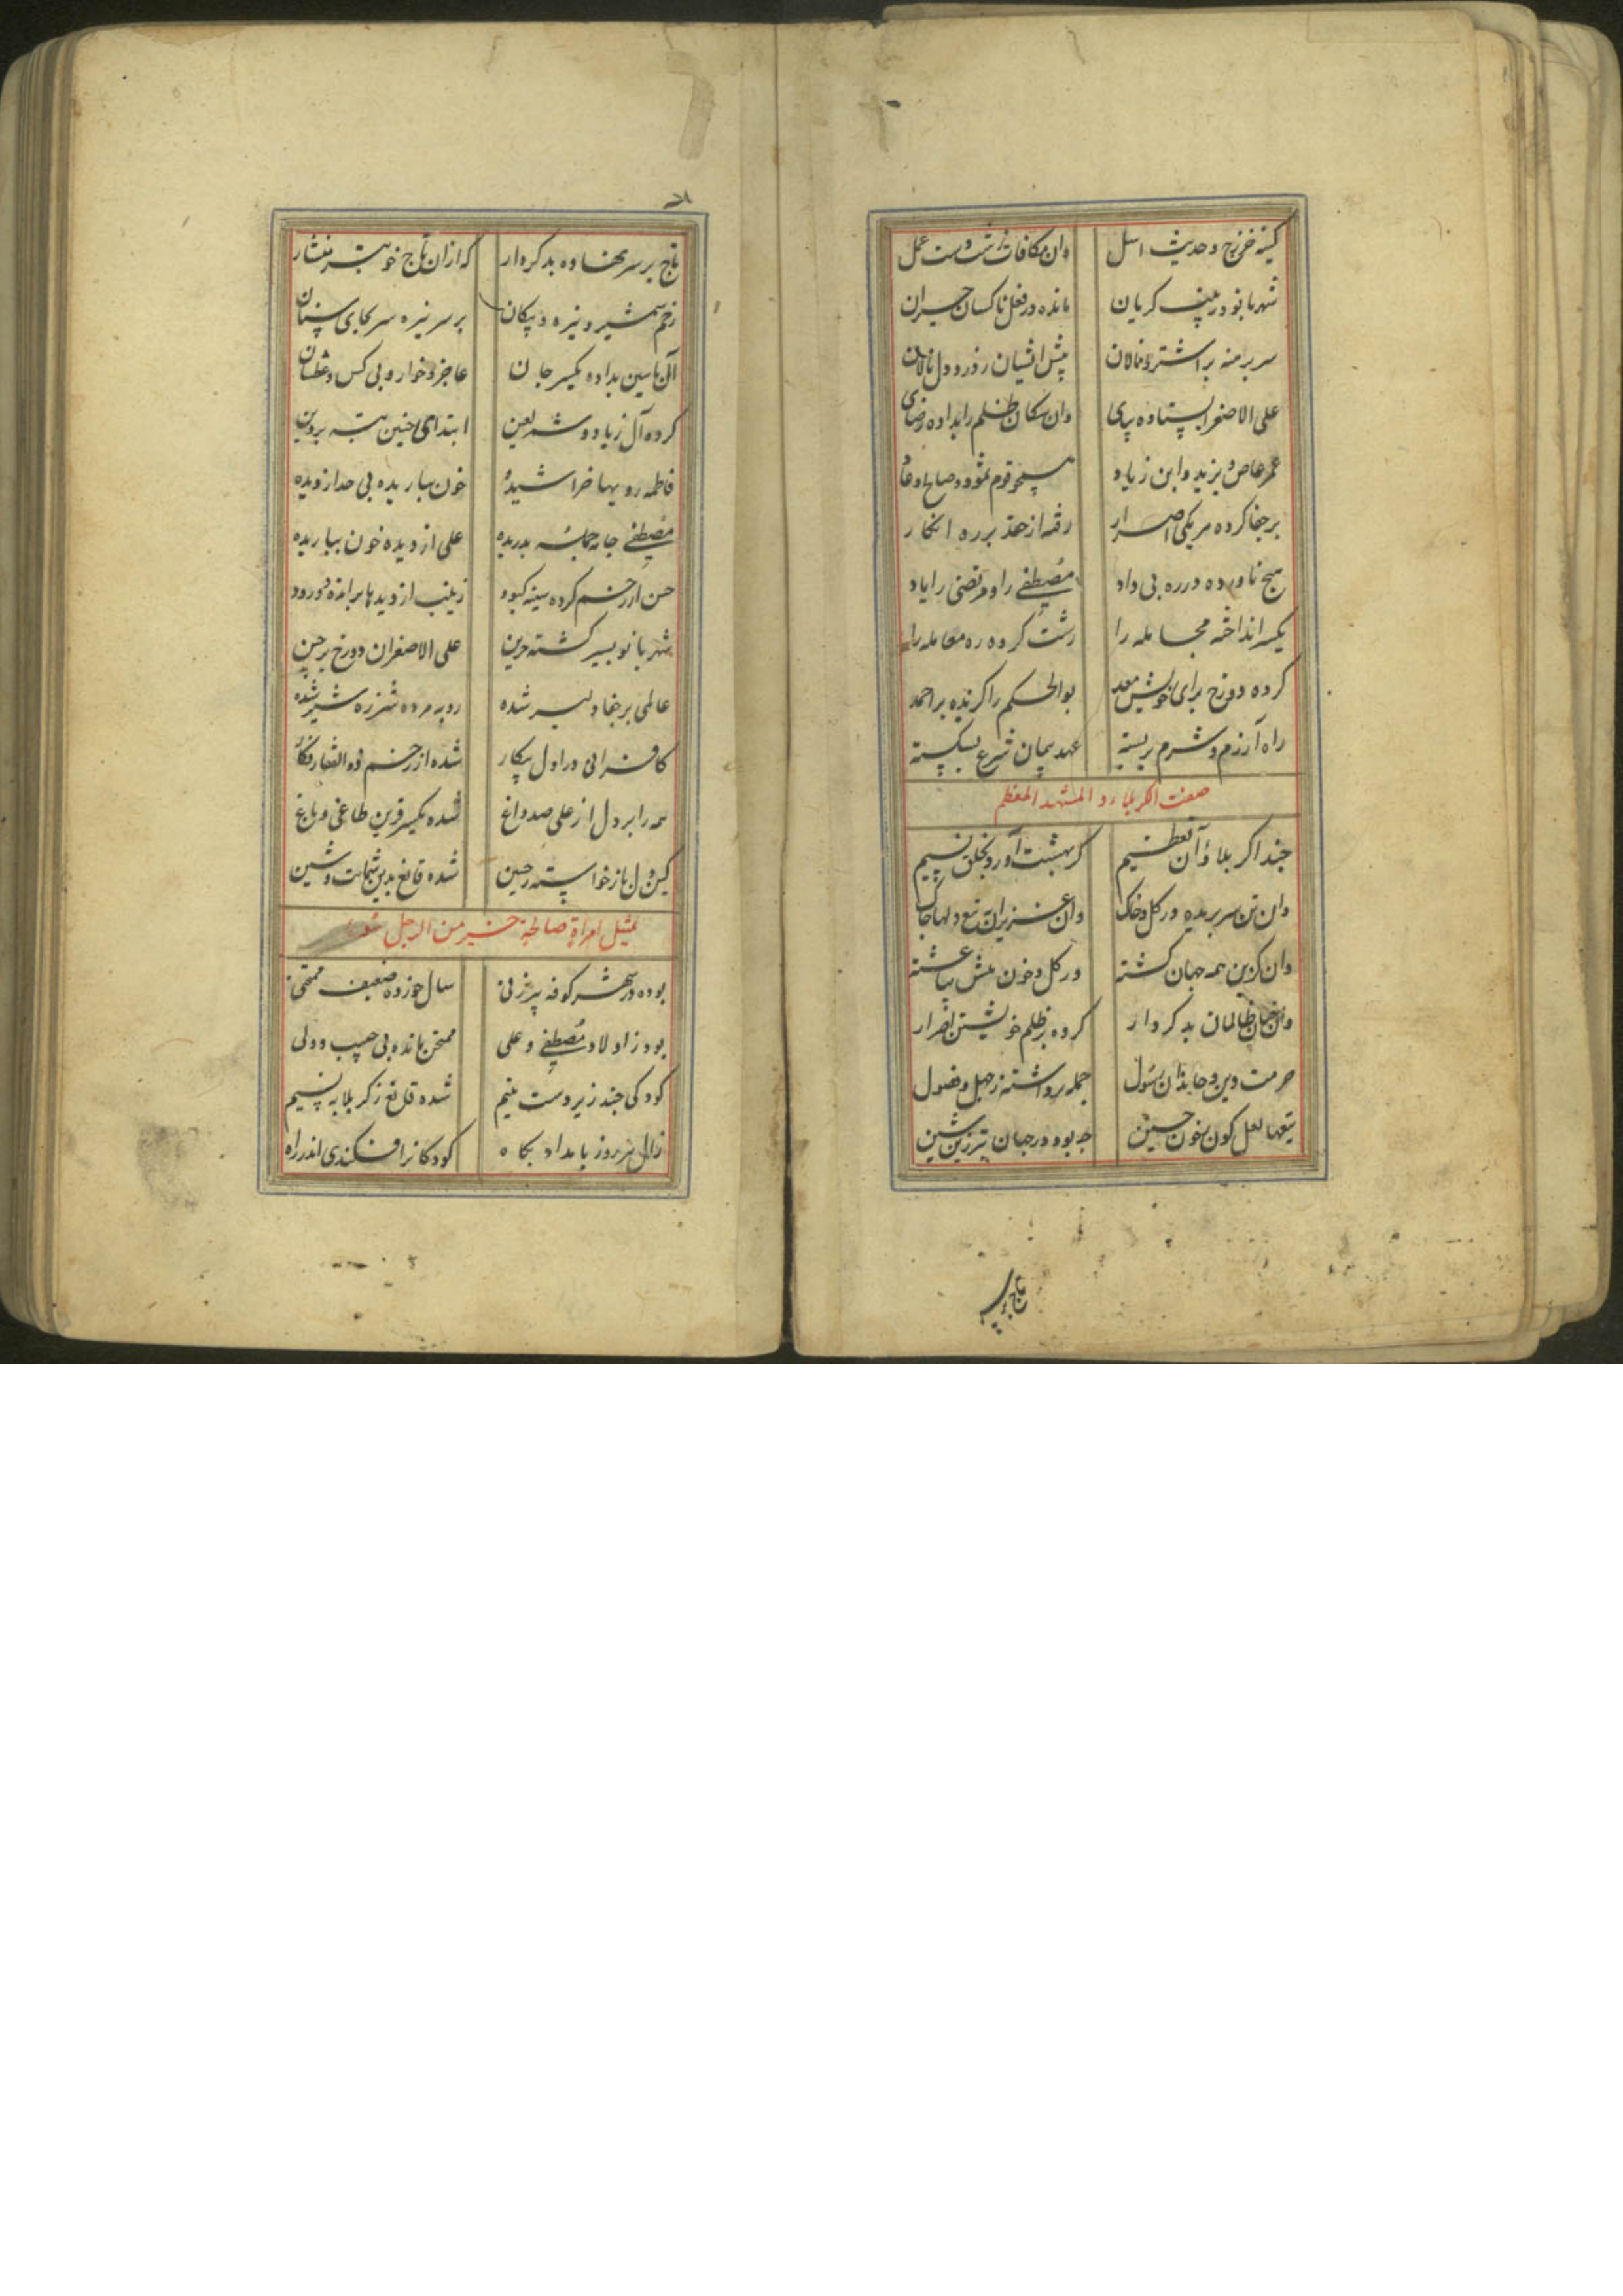 کینه خزرج و حدیث اسل وان مکافات زشت وست عمل
شهربانو و زینب کریان مانده در فعل ناکسان حیران
سر برهنه بر اشتر و نالان پیش ایشان ز درد دل نالان
علی الاصغر ایستاده بپای وان سکان ظلم را بداده رضای
عمر عاص و یزید و ابن زیاد همچو قوم ثمود و صالح و عاد
بر جفا کرده هر یکی اصرار رفته از حقد بر ره انکار
هیچ ناورده در ره بی داد مصطفی را و مرتضی را یاد
یکسر انداخته مجامله را زشت کرده ره معامله را
کرده دوزخ برای خویش معد بوالحکم را کزیده بر احمد
راه آزرم و شرم بربسته عهد و پیمان شرع بشکسته
صفت الکربلا و المشهد المعظم
حبذا کربلا و آن تعظیم کز بهشت آورد بخلق نسیم
وان تن سر بریده در کل و خاک وان عزیزان بتیغ دلها چاک
وان کزین همه جهان کشته در کل و خون تنش بیاغشته
وان چنان ظالمان بد کردار کرده بر ظلم خویشتن اصرار
حرمت دین و خاندان رسول جمله برداشته ز جهل و فضول
تیغها لعل کون بخون حسین چه بود در جهان بتر زین شین
تاج بر سر
تاج بر سر نهاده بد کردار که ازان تاج خوبتر منشار
زخم شمشیر و نیزه و پیکان بر سر نیزه سر بجای سنان
آل یاسین بداده یکسر جان عاجز و خوار و بی کس و عطشان
کرده آل زیاد و شمر لعین ابتدای چنین تبه بر دین
فاطمه رویها خراشیده خون بباریده بی حد از دیده
مصطفی جامه جمله بدریده علی از دیده خون بباریده
حسن از زخم کرده سینه کبود زینب از دیدها برانده دو رود
شهربانو بسیر کشته حزین علی الاصغر ان دو رخ پرچین
عالمی بر جفا دلیر شده روبه مرده شرزه شیر شده
کافرانی در اول پیکار شده از زخم ذوالفقار فکار
همه را بر دل از علی صد داغ شده یکسر قرین طاغی و باغ
کین دل بازخواسته ز حسین شده قانع بدین شماتت و شین
تمثیل امراة صالحة خیر من الرجل سوء
بوده در شهر کوفه پیرزنی سال خورده ضعیف ممتحنی
بود ز اولاد مصطفی و علی ممتحن مانده بی حبیب و ولی
کودکی چند زیر دست یتیم شده قانع ز کربلا به نسیم
زال هر روز بامداد بکاه کودکانرا فکندی اندر راه